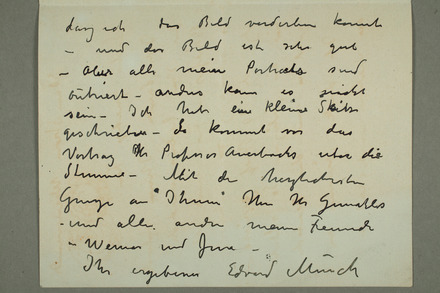 dass ich das Bild verdorben könnte
– und das Bild ist sehr gut
– Aber alle meine Portraits sind
outriert – anders kann es nicht
sein – Ich habe eine kleine Skitse
geschrieben – Es kommt vor das
Vortrag Hr Professor Auerbachs über die
Stimme – Mit den herzlichsten
Grüsse an Ihnen Hr
– und alle andre meine Freunde
– Werner und
Ihr ergebener Edvard Munch